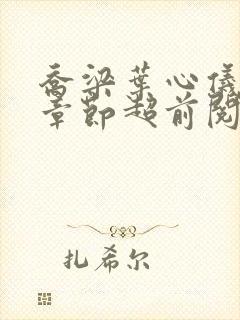 乔梁叶心仪
章节超前阅
扎希尔